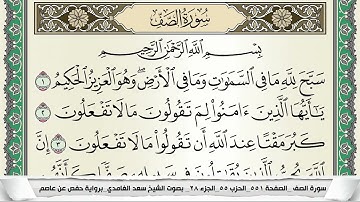 سُورَةُ الصَّفِّ
بِسْمِ اللَّهِ الرَّحْمَٰنِ الرَّحِيمِ
سَبَّحَ لِلَّهِ مَا فِي السَّمَٰوَٰتِ وَمَا فِي الْأَرْضِ وَهُوَ الْعَزِيزُ الْحَكِيمُ ١
يَٰٓأَيُّهَا الَّذِينَ ءَامَنُوا لِمَ تَقُولُونَ مَا لَا تَفْعَلُونَ ٢
كَبُرَ مَقْتًا عِندَ اللَّهِ أَن تَقُولُوا مَا لَا تَفْعَلُونَ ٣ إِنَّ
اللَّهَ يُحِبُّ الَّذِينَ يُقَٰتِلُونَ فِي سَبِيلِهِ صَفًّا كَأَنَّهُم
سورة الصف _الصفحة ٥٥١ _الحزب ٥٥ _الجزء ٢٨ _ بصوت الشيخ سعد الغامدي _برواية حفص عن عاصم